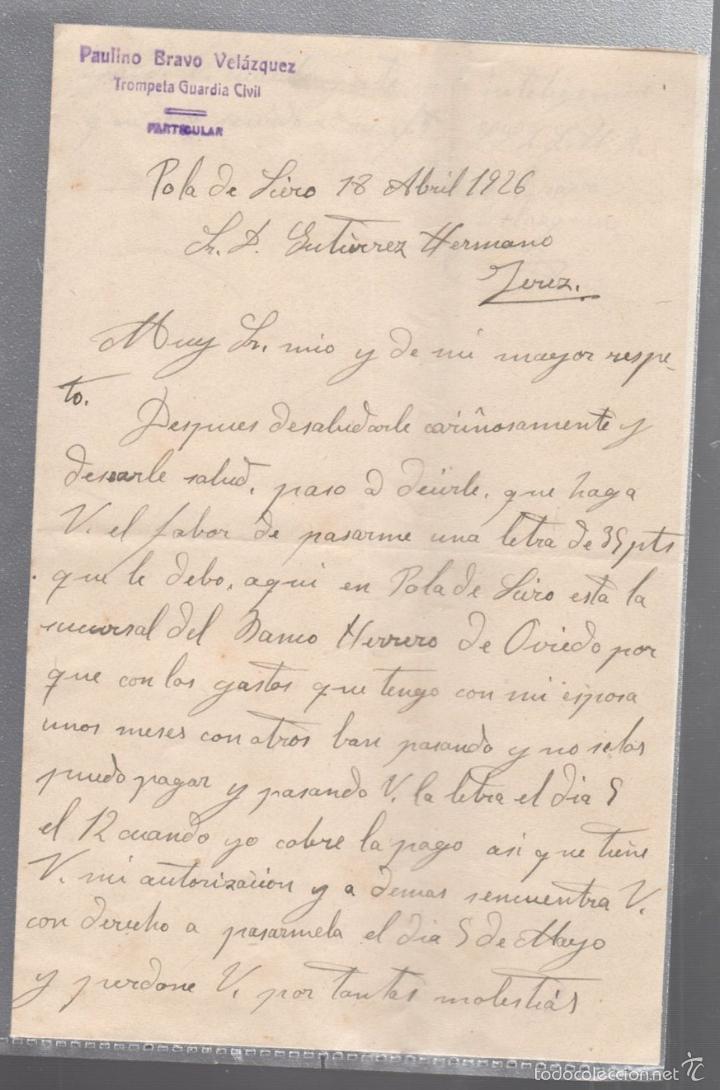 Paulino Bravo Velázquez
Trompeta Guardia Civil
PARTICULAR
Pola de Siero 18 Abril 1926
Sr. D. Gutiérrez Hermano
Jerez.
Muy Sr. mio y de mi mayor respe-
to.
Despues desaludarle cariñosamente y
desearle salud, paso a decirle, que haga
V. el fabor de pasarme una letra de 35 pts
que le debo, aqui en Pola de Siero esta la
sucursal del Banco Herrero de Oviedo por
que con los gastos que tengo con mi esposa
unos meses con otros ban pasando y no selas
puedo pagar y pasando V. la letra el dia 5
el 12 cuando yo cobre la pago asi que tiene
V. mi autorización y a demas sencuentra V.
con derecho a pasarmela el dia 5 de Mayo
y perdone V. por tantas molestias
todocoleccion.net